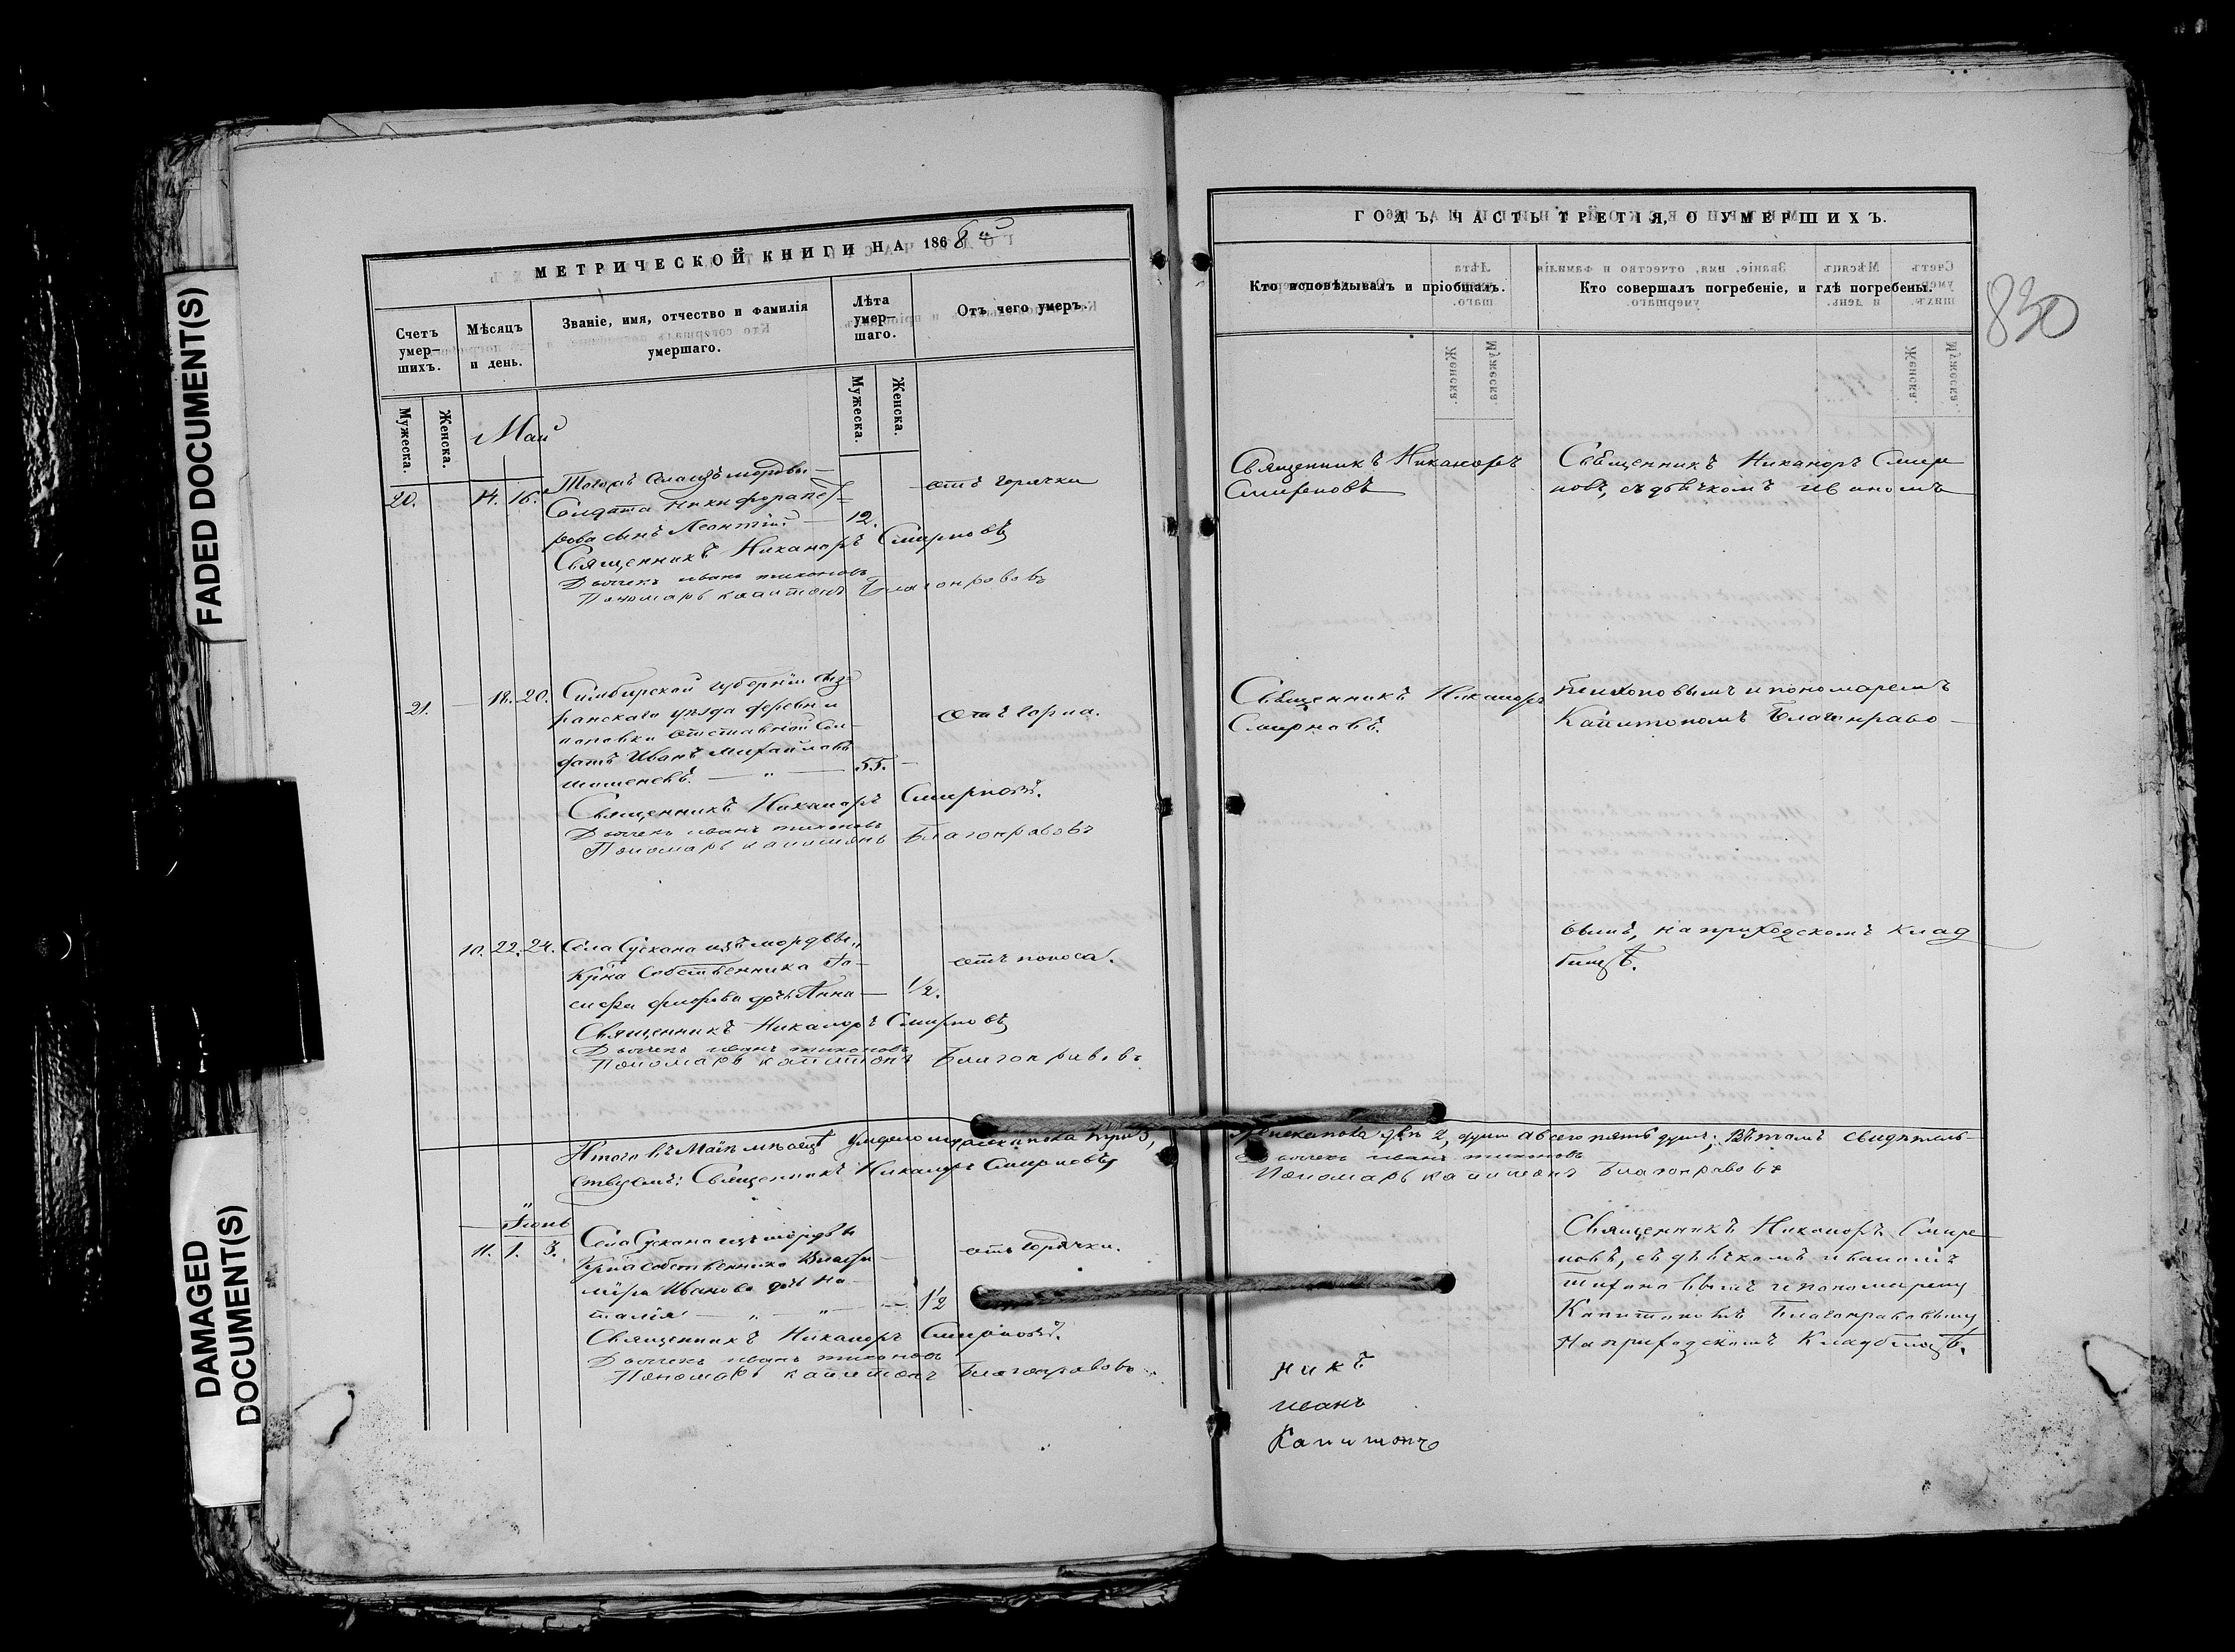 FADED DOCUMENT(S)
DAMAGED
DOCUMENT(S)
МЕТРИЧЕСКОЙ КНИГИ НА 1868 й
Счетъ
умер-
шихъ.
Мѣсяцъ
и день.
Званіе, имя, отчество и фамилія
умершаго.
Лѣта
умер-
шаго.
Отъ чего умеръ.
Мужеска.
Женска.
Мужеска.
Женска.
Май
20. 14. 16. Тогожъ Села изъ мордвы
отъ горячки
Солдата Никифора Пет-
рова сынъ Леонтій 12.
Священникъ Никаноръ Смирновъ
Дьячекъ иванъ тихоновъ
Пономарь капитонъ Благонравовъ
21. 18. 20. Симбирской губерніи Сыз-
ранскаго уѣзда деревни
отъ горла.
отставной Сол-
датъ Иванъ Михайловъ
55.
Священникъ Никаноръ Смирновъ.
Дьячекъ иванъ тихоновъ
Пономарь капитонъ Благонравовъ
10. 22. 24. Села Сускана изъ мордвы
отъ поноса.
Крна Собственника
дочь Анна 1/2.
Священникъ Никаноръ Смирновъ
Дьячекъ иванъ тихоновъ
Пономарь капитонъ Благонравовъ
Итого въ Маіѣ мѣсяцѣ умерло
ствуемъ: Священникъ Никаноръ Смирновъ
Іюнь
11. 1. 3. Села Сускана изъ мордвы
отъ горячки.
Крна собственника Влади-
міра Иванова дочь На-
талія 1/2
Священникъ Никаноръ Смирновъ.
Дьячекъ иванъ тихоновъ
Пономарь капитонъ Благонравовъ
ГОДЪ, ЧАСТЬ ТРЕТІЯ, О УМЕРШИХЪ.
830
Кто исповѣдывалъ и пріобщалъ.
Кто совершалъ погребеніе, и гдѣ погребены.
Священникъ Никаноръ
Смирновъ
Священникъ Никаноръ Смир
новъ, съ дьячкомъ иваномъ
Священникъ Никаноръ
Смирновъ.
Тихоновымъ и пономаремъ
Капитономъ Благонраво-
вымъ, на приходскомъ клад
бищѣ.
2, души а всего пять душъ; Въ томъ свидѣтель-
Дьячекъ иванъ тихоновъ
Пономарь капитонъ Благонравовъ
Священникъ Никаноръ Смир
новъ, съ дьячкомъ иваномъ
тихоновымъ и пономаремъ
Капитономъ Благонравовымъ
На приходскомъ Кладбищѣ.
никъ
иванъ
Капитонъ